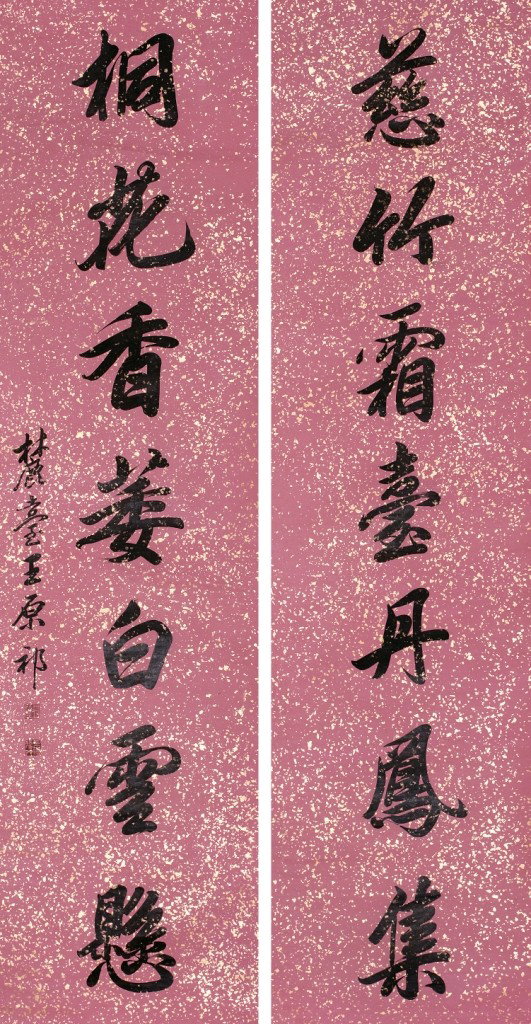 慈竹霜臺丹鳳集
桐花香萎白雲懸
麓臺王原祁